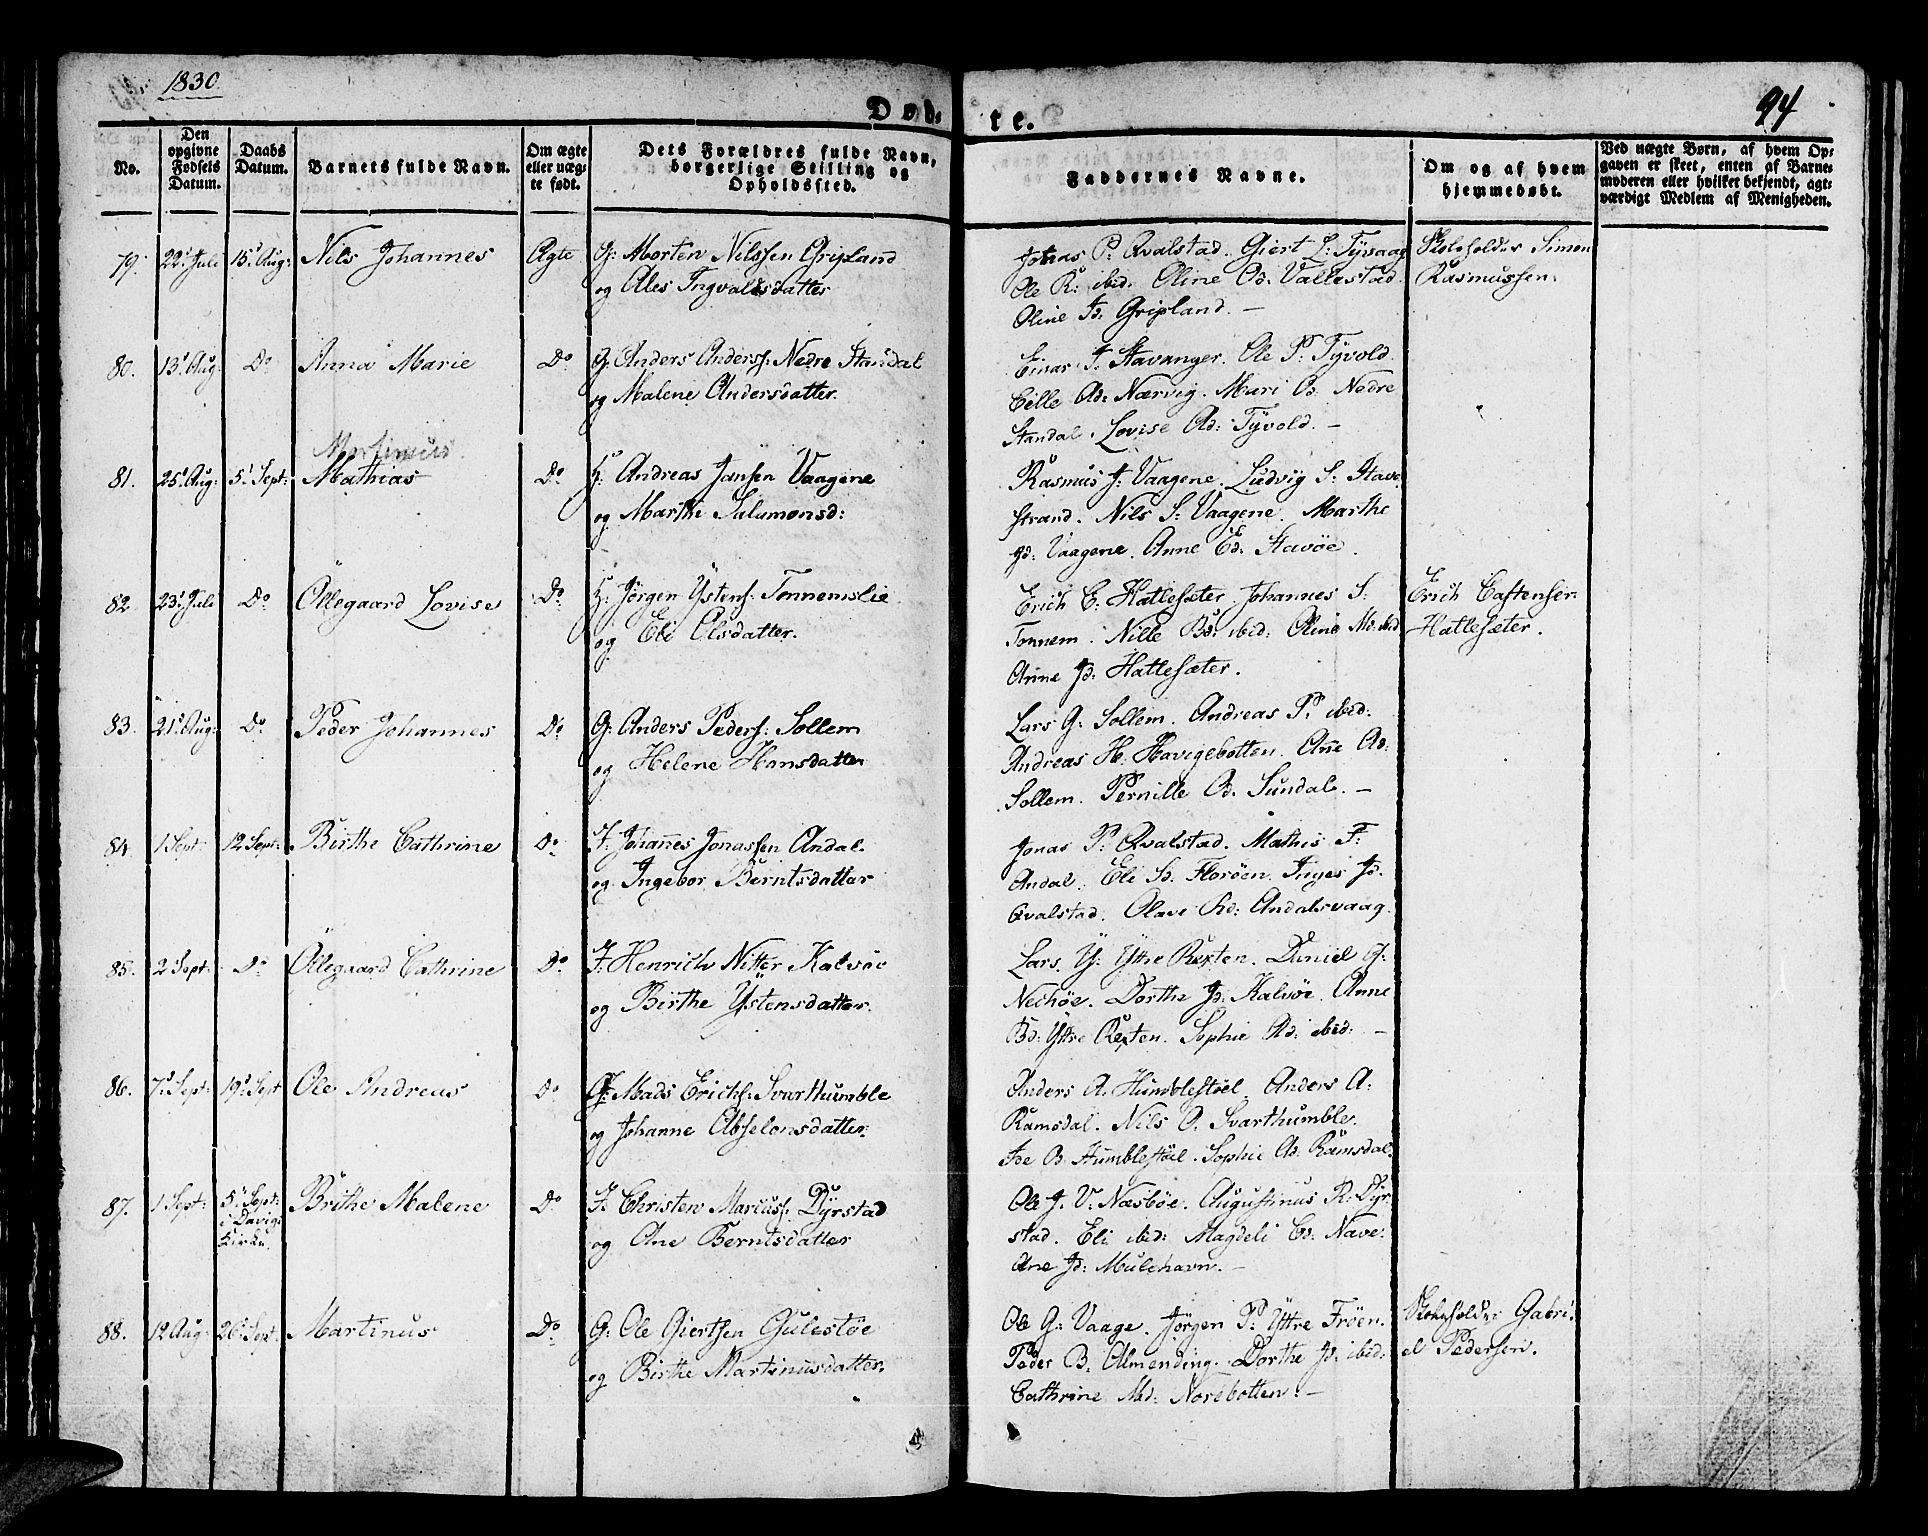 1830
94
Døb- te.
No.
Den opgivne Fødsels Datum.
Daabs Datum.
Barnets fulde Navn.
Om ægte eller uægte født.
Dets Forældres fulde Navn, borgerlige Stilling og Opholdssted.
Faddernes Navne.
Om og af hvem hjemmedøbt.
Ved uægte Børn, af hvem Opgaven er skeet, enten af Barnemoderen eller hvilket bekjendt, agtværdigt Medlem af Menigheden.
79. 22' Juli 15' Aug: Nils Johannes Ægte G: Morten Nilssen Gripland
og Ales Ingvaldsdatter
Jonas P. Qvalstad. Giert L:
Ole R: ibid. Oline Od: Vallestad
Oline Jd: Gripland. —
Skoleholder Simon
Rasmussen.
80. 13' Aug: Do Anna Marie Do G: Anders Anders: Nedre Standal
og Malene Andersdatter.
Einar J. Stavanger. Ole P. Tyvold.
Cille Ad: Nærvig. Mari Od: Nedre
Standal. Lovise Ad: Tyvold. —
Martinus
81. 25' Aug: 5' Sept: Mathias Do H: Andreas Jansen Vaagene
og Marthe Salamonsd:
Rasmus J: Vaagene. Ludvig S: Stave
strand. Nils S: Vaagene. Marthe
Jd: Vaagene. Anne Ed: Stavøe.
82 23' Juli Do Öllegaard Lovise Do H: Jørgen Ÿstens: Tonnemslie
og Eli Olsdatter.
Erich C: Hatlesæter. Johannes S:
Tonnem. Nille Bd: ibid: Oline Md: ibid
Anne Jd: Hatlesæter.
Erich Castensen
Hatlesæter.
83. 21' Aug: Do Peder Johannes Do G: Anders Peders: Sollem
og Helene Hansdatter
Lars G: Sollem. Andreas P. ibid:
Andreas H: Havigebotten. Ane Ad:
Sollem. Pernille Od. Sundal. —
84. 1 Sept: 12 Sept: Birthe Cathrine Do J: Johanes Jonassen Andal.
og Ingebor Berntsdatter
Jonas P. Qvalstad. Mathis F.
Andal. Eli Sd. Florøen. Inger Jd.
Qvalstad. Olave Andalsvaag.
85. 2 Sept: Do Öllegaard Cathrine Do J: Henrich Nitter Kalvøe
og Birthe Ÿstensdatter.
Lars Y: Yttre Rexten. Daniel A:
Nechøe. Dorthe Jd: Kalvøe. Anne
Bd: Yttre Rexten. Sophie Ad: ibid: —
86. 7' Sept: 19' Sept Ole Andreas Do G: Mads Erichs: Svarthumble
og Johanne Abselonsdatter.
Anders A. Humblestøel. Anders A:
Ramsdal. Nils O. Svarthumble.
Humblestøel. Sophie Ad. Ramsdal.
87. 1 Sept: 5' Sept: i Davigs Kirke. Brithe Malene Do J: Christen Marcuss: Dyrstad
og Ane Berntsdatter
Ole J. V: Næsbøe. Augustinus R: Dyr
stad. Eli ibid: Magdeli Cd: Nave.
Ane Jd: Mulehavn. —
88. 12 Aug: 26' Sept: Martinus Do G: Ole Giertsen Gulestøe
og Birthe Martinusdatter
Ole G: Vaage. Jørgen P: Yttre Frøen.
Peder B. Almending. Dorthe Jd: ibid:
Cathrine Md: Norebotten. —
Skoleholder Gabri-
el Pedersen.